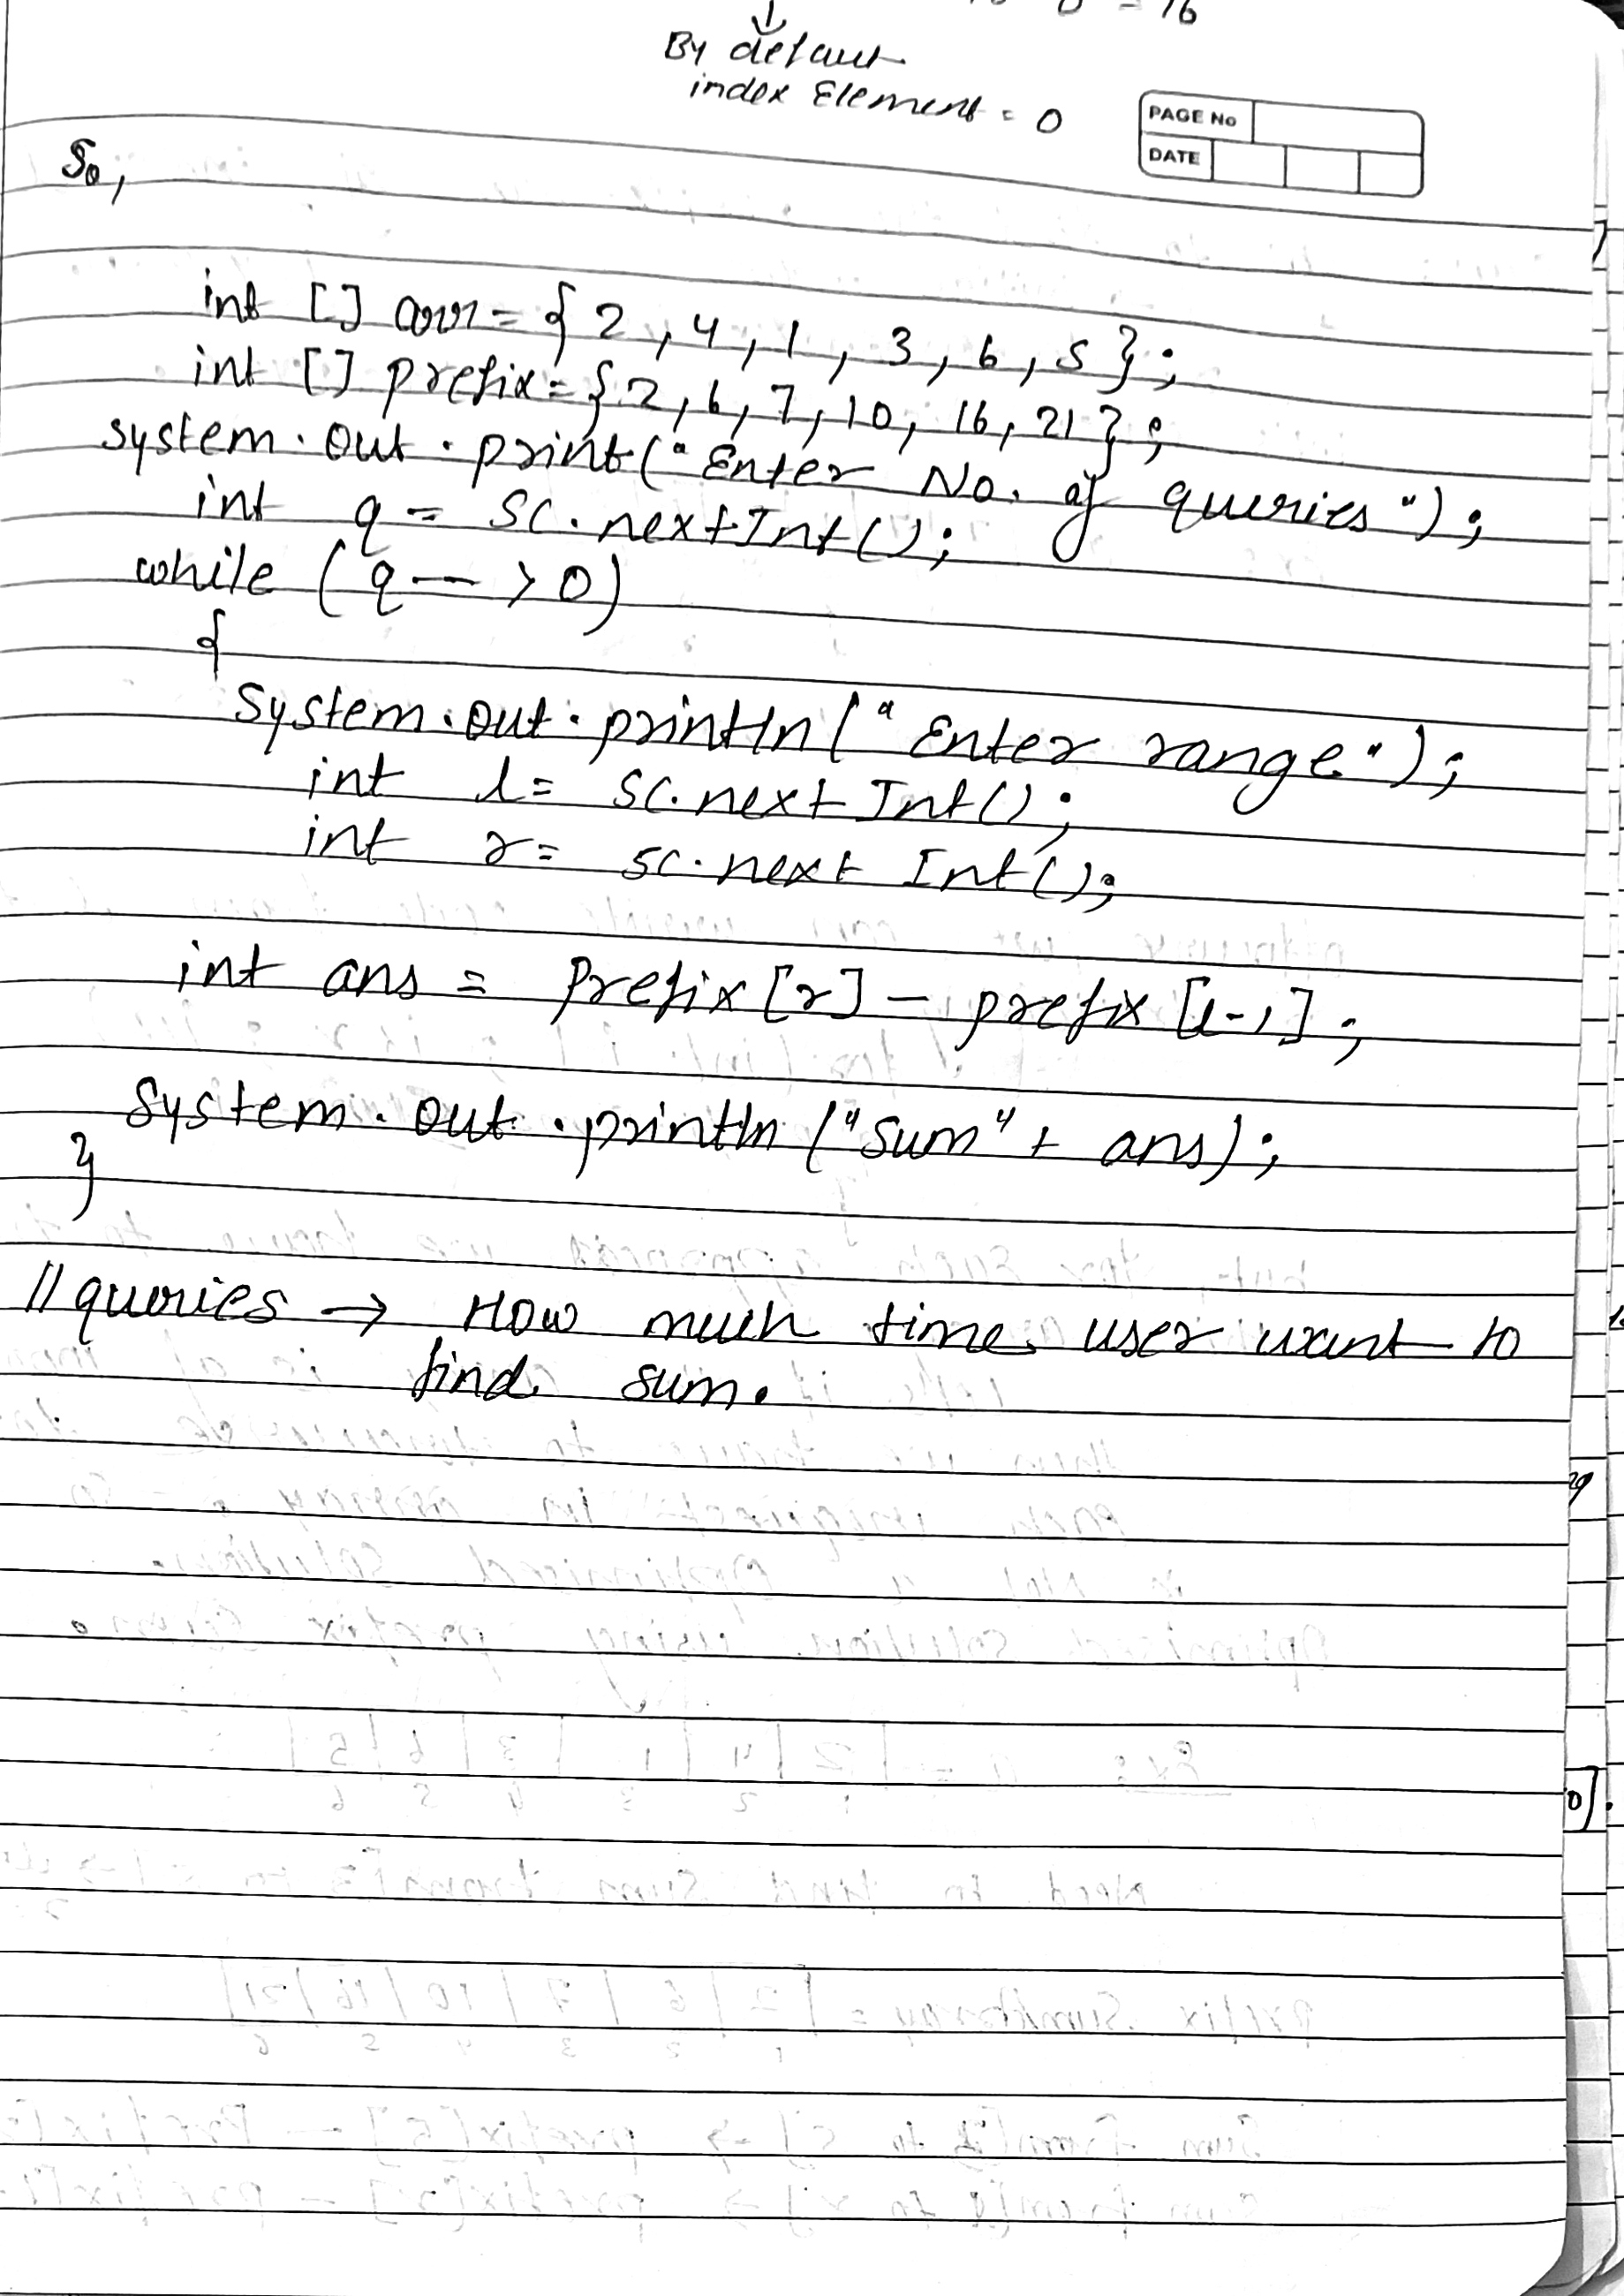 0 = 16
↓
By default
index Element = 0
PAGE No
DATE
So,
int [] arr = { 2, 4, 1, 3, 6, 5 };
int [] prefix = { 2, 6, 7, 10, 16, 21 };
system.out.print("Enter No. of queries");
int q = sc.nextInt();
while (q-- > 0)
{
System.out.println("Enter range");
int l = sc.nextInt();
int r = sc.next Int();
int ans = prefix[r] - prefix [l-1];
System.out.println("Sum" + ans);
}
// queries → How much time user want to
find sum.